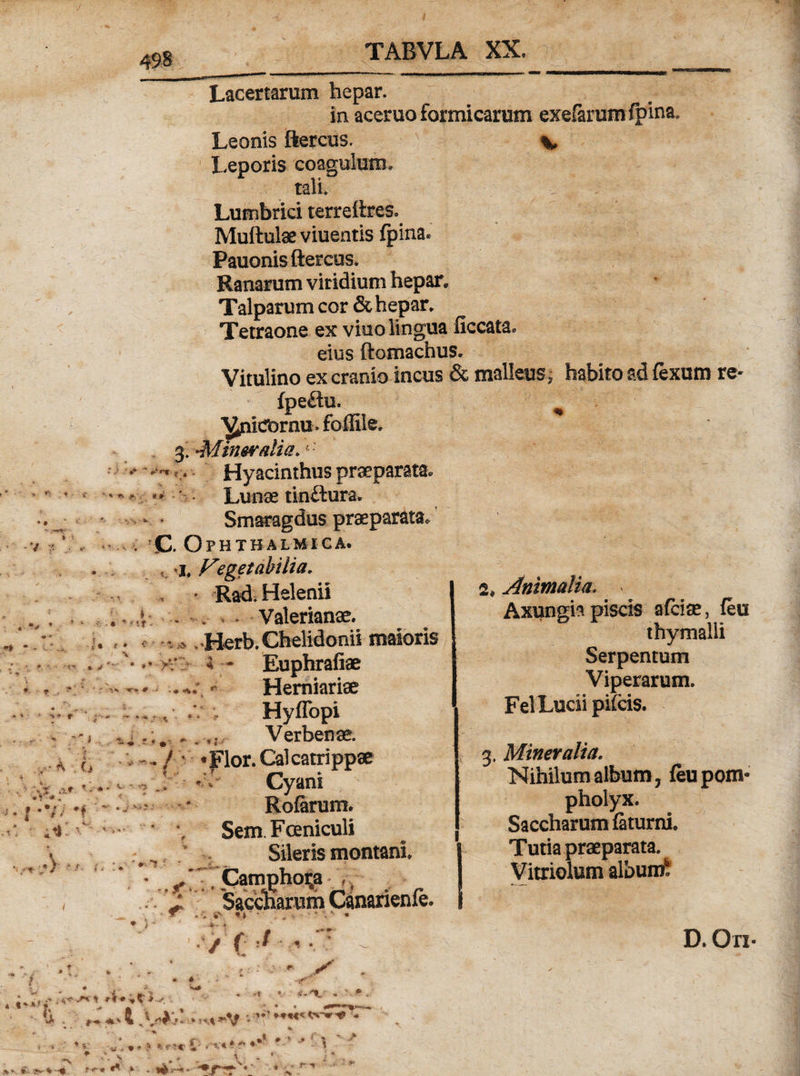 498
TABVLA XX.
Lacertarum hepar.
in aceruo formicarum exeſarum ſpina.
Leonis ſtercus.
Leporis coagulum.
tali.
Lumbrici terreſtres.
Muſtulæ viuentis ſpina.
Pauonis ſtercus.
Ranarum viridium hepar.
Talparum cor & hepar.
Tetraone ex viuo lingua ſiccata.
eius ſtomachus.
Vitulino ex cranio incus & malleus, habito ad ſexum re-
ſpectu.
Vnicornu foſſile.
3. Mineralia.
Hyacinthus præparata.
Lunæ tinctura.
Smaragdus præparata.
C. OPHTHALMICA.
1. Vegetabilia.
Rad. Helenii
Valerianæ.
Herb. Chelidonii maioris
Euphraſiæ
Herniariæ
Hyſſopi
Verbenæ.
Flor. Calcatrippæ
Cyani
Roſarum.
Sem. Fœniculi
Sileris montani.
Camphora
Saccharum Canarienſe.
2. Animalia.
Axungia piscis aſciæ, ſeu
thymalli
Serpentum
Viperarum.
Fel Lucii piſcis.
3. Mineralia.
Nihilum album, ſeu pom-
pholyx.
Saccharum ſaturni.
Tutia præparata.
Vitriolum album.
D. Ori-